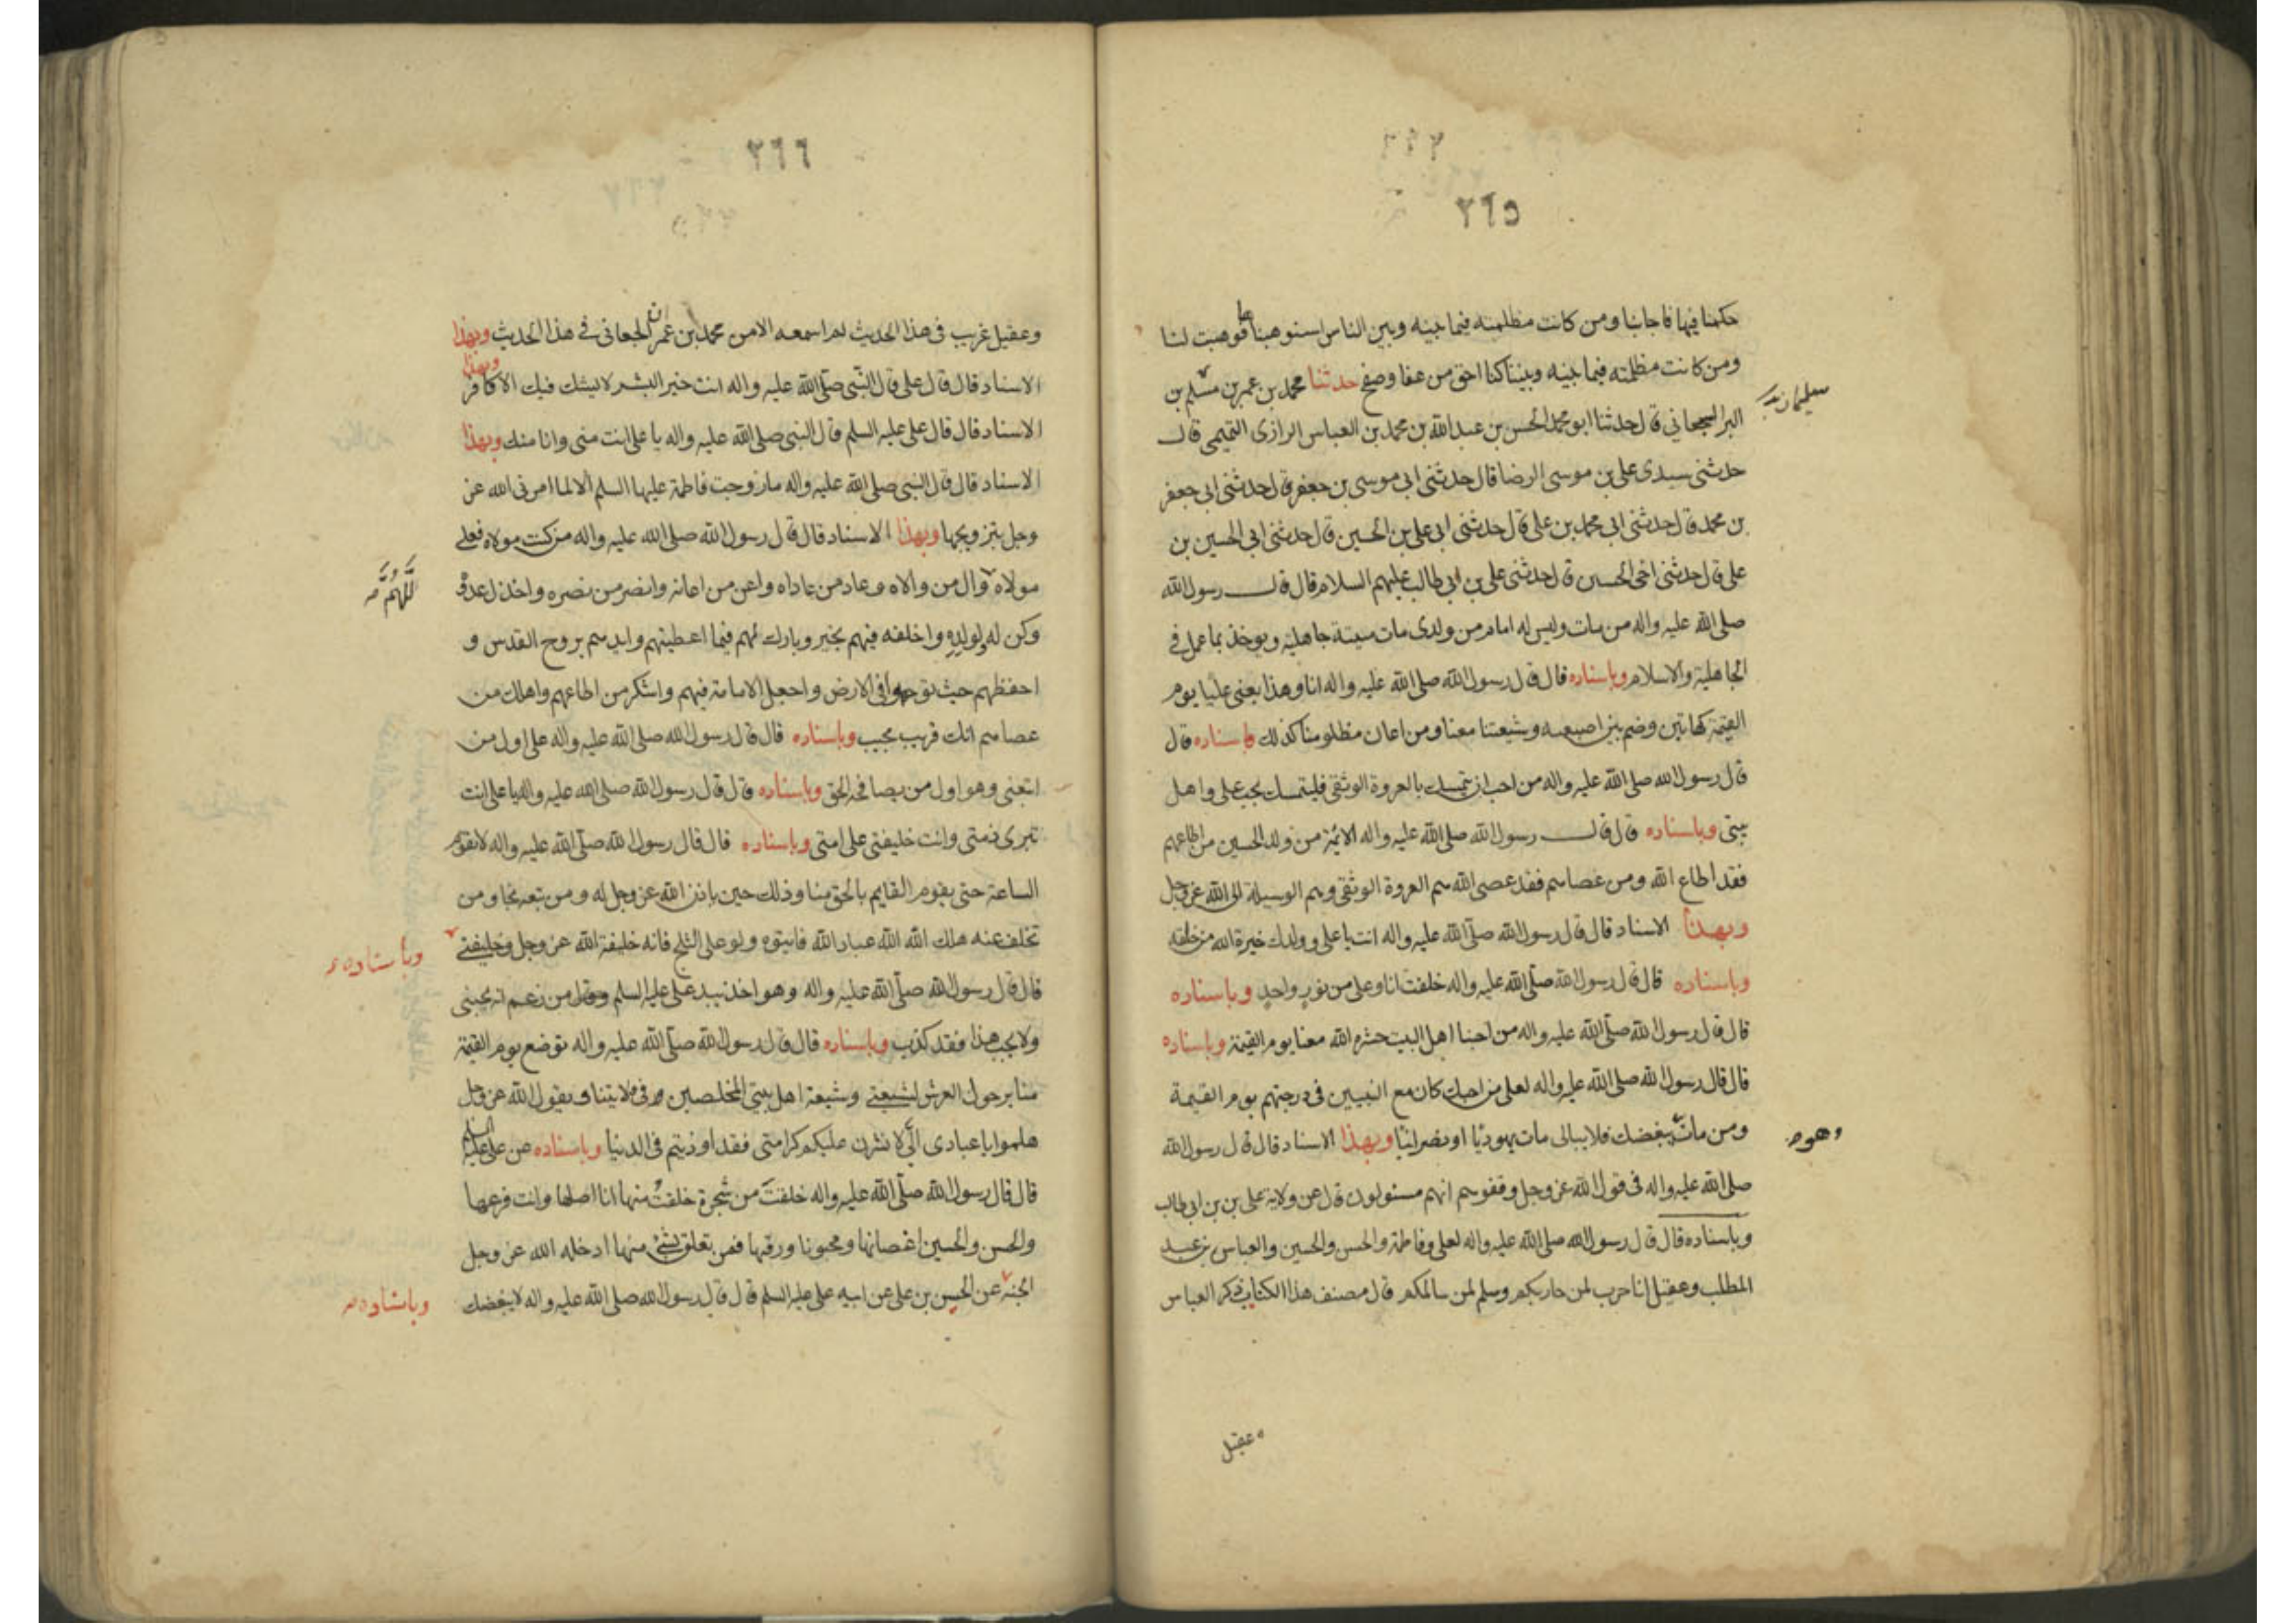 ٢٦٥
حكمنا فيها فاجابنا ومن كانت مظلمته فيما بينه وبين الناس استوهبناها فوهبت لنا
ومن كانت مظلمته فيما بينه وبيننا كنا احق من عفا وصفح حدثنا محمد بن عمر بن مسلم بن
البرا الجعاني قال حدثنا ابو محمد الحسن بن عبد الله بن محمد بن العباس الرازى التميمى قال
حدثنى سيدى على بن موسى الرضا قال حدثنى ابى موسى بن جعفر قال حدثنى ابى جعفر
بن محمد قال حدثنى ابى محمد بن على قال حدثنى ابى على بن الحسين قال حدثنى ابى الحسين بن
على قال حدثنى اخى الحسين قال حدثنى على بن ابى طالب عليهم السلام قال قال رسول الله
صلى الله عليه واله من مات وليس له امام من ولدى مات ميتة جاهلية ويوخذ بما عمل فى
الجاهلية والاسلام وباسناده قال قال رسول الله صلى الله عليه واله انا وهذا يعنى عليا يوم
القيمة كهاتين وضم بين اصبعيه وشيعتنا معنا ومن اعان مظلومنا كذلك وباسناده قال
قال رسول الله صلى الله عليه واله من احب ان يتمسك بالعروة الوثقى فليتمسك بحب على واهل
بيتى وباسناده قال قال رسول الله صلى الله عليه واله الائمة من ولد الحسين من اطاعهم
فقد اطاع الله ومن عصاهم فقد عصى الله هم العروة الوثقى وهم الوسيلة الى الله عز وجل
وبهذا الاسناد قال قال رسول الله صلى الله عليه واله انت يا على وولدك خيرة الله من خلقه
وباسناده قال قال رسول الله صلى الله عليه واله خلقت انا وعلى من نور واحد وباسناده
قال قال رسول الله صلى الله عليه واله من احبنا اهل البيت حشره الله معنا يوم القيمة وباسناده
قال قال رسول الله صلى الله عليه واله لعلى من احبك كان مع النبيين فى درجتهم يوم القيمة
ومن مات يبغضك فلا يبالى مات يهوديا او نصرانيا وبهذا الاسناد قال قال رسول الله
وهو
صلى الله عليه واله فى قول الله عز وجل وقفوهم انهم مسئولون قال عن ولاية على بن بن ابى طالب
وباسناده قال قال رسول الله صلى الله عليه واله لعلى وفاطمة والحسن والحسين والعباس بن عبد
المطلب وعقيل انا حرب لمن حاربكم وسلم لمن سالمكم قال مصنف هذا الكتاب ذكر العباس
عقيل
٢٦٦
وعقيل غريب فى هذا الحديث لم اسمعه الا من محمد بن عمر الجعانى فى هذا الحديث وبهذا
الاسناد قال قال على قال النبى صلى الله عليه واله انت خير البشر لا يشك فيك الا كافر وبهذا
الاسناد قال قال على عليه السلم قال النبى صلى الله عليه واله يا على انت منى وانا منك وبهذا
الاسناد قال قال النبى صلى الله عليه واله ما زوجت فاطمة عليها السلم الا لما امرنى الله عز
وجل بتزويجها وبهذا الاسناد قال قال رسول الله صلى الله عليه واله من كنت مولاه فعلى
مولاه وال من والاه وعاد من عاداه واعن من اعانه وانصر من نصره واخذل عدوه
اللهم
وكن له ولولده واخلفه فيهم بخير وبارك لهم فيما اعطيتهم وايدهم بروح القدس و
احفظهم حيث توجهوا فى الارض واجعل الامامة فيهم واشكر من اطاعهم واهلك من
عصاهم انك قريب مجيب وباسناده قال قال رسول الله صلى الله عليه واله على اول من
اتبعنى وهو اول من يصافحه الحق وباسناده قال قال رسول الله صلى الله عليه واله يا على انت
تبرى ذمتى وانت خليفتى على امتى وباسناده قال قال رسول الله صلى الله عليه واله لا تقوم
الساعة حتى يقوم القايم بالحق منا وذلك حين ياذن الله عز وجل له ومن تبعه نجا ومن
تخلف عنه هلك الله الله عباد الله فايتوه ولو على الثلج فانه خليفة الله عز وجل وخليفتى
وباسناده
قال قال رسول الله صلى الله عليه واله وهو اخذ بيد على عليه السلم وقال من زعم انه يحبنى
ولا يحب هذا فقد كذب وباسناده قال قال رسول الله صلى الله عليه واله توضع يوم القيمة
منابر حول العرش لشيعتى وشيعة اهل بيتى المخلصين فى ولايتنا ويقول الله عز وجل
هلموا يا عبادى الى لانشرن عليكم كرامتى فقد اوذيتم فى الدنيا وباسناده عن على عليه السلم
قال قال رسول الله صلى الله عليه واله خلقت من شجرة خلقت منها انا اصلها وانت فرعها
والحسن والحسين اغصانها ومحبونا ورقها فمن تعلق بشئ منها ادخله الله عز وجل
الجنة عن الحسين بن على عن ابيه على عليه السلم قال قال رسول الله صلى الله عليه واله لا يبغضك
وباسناده